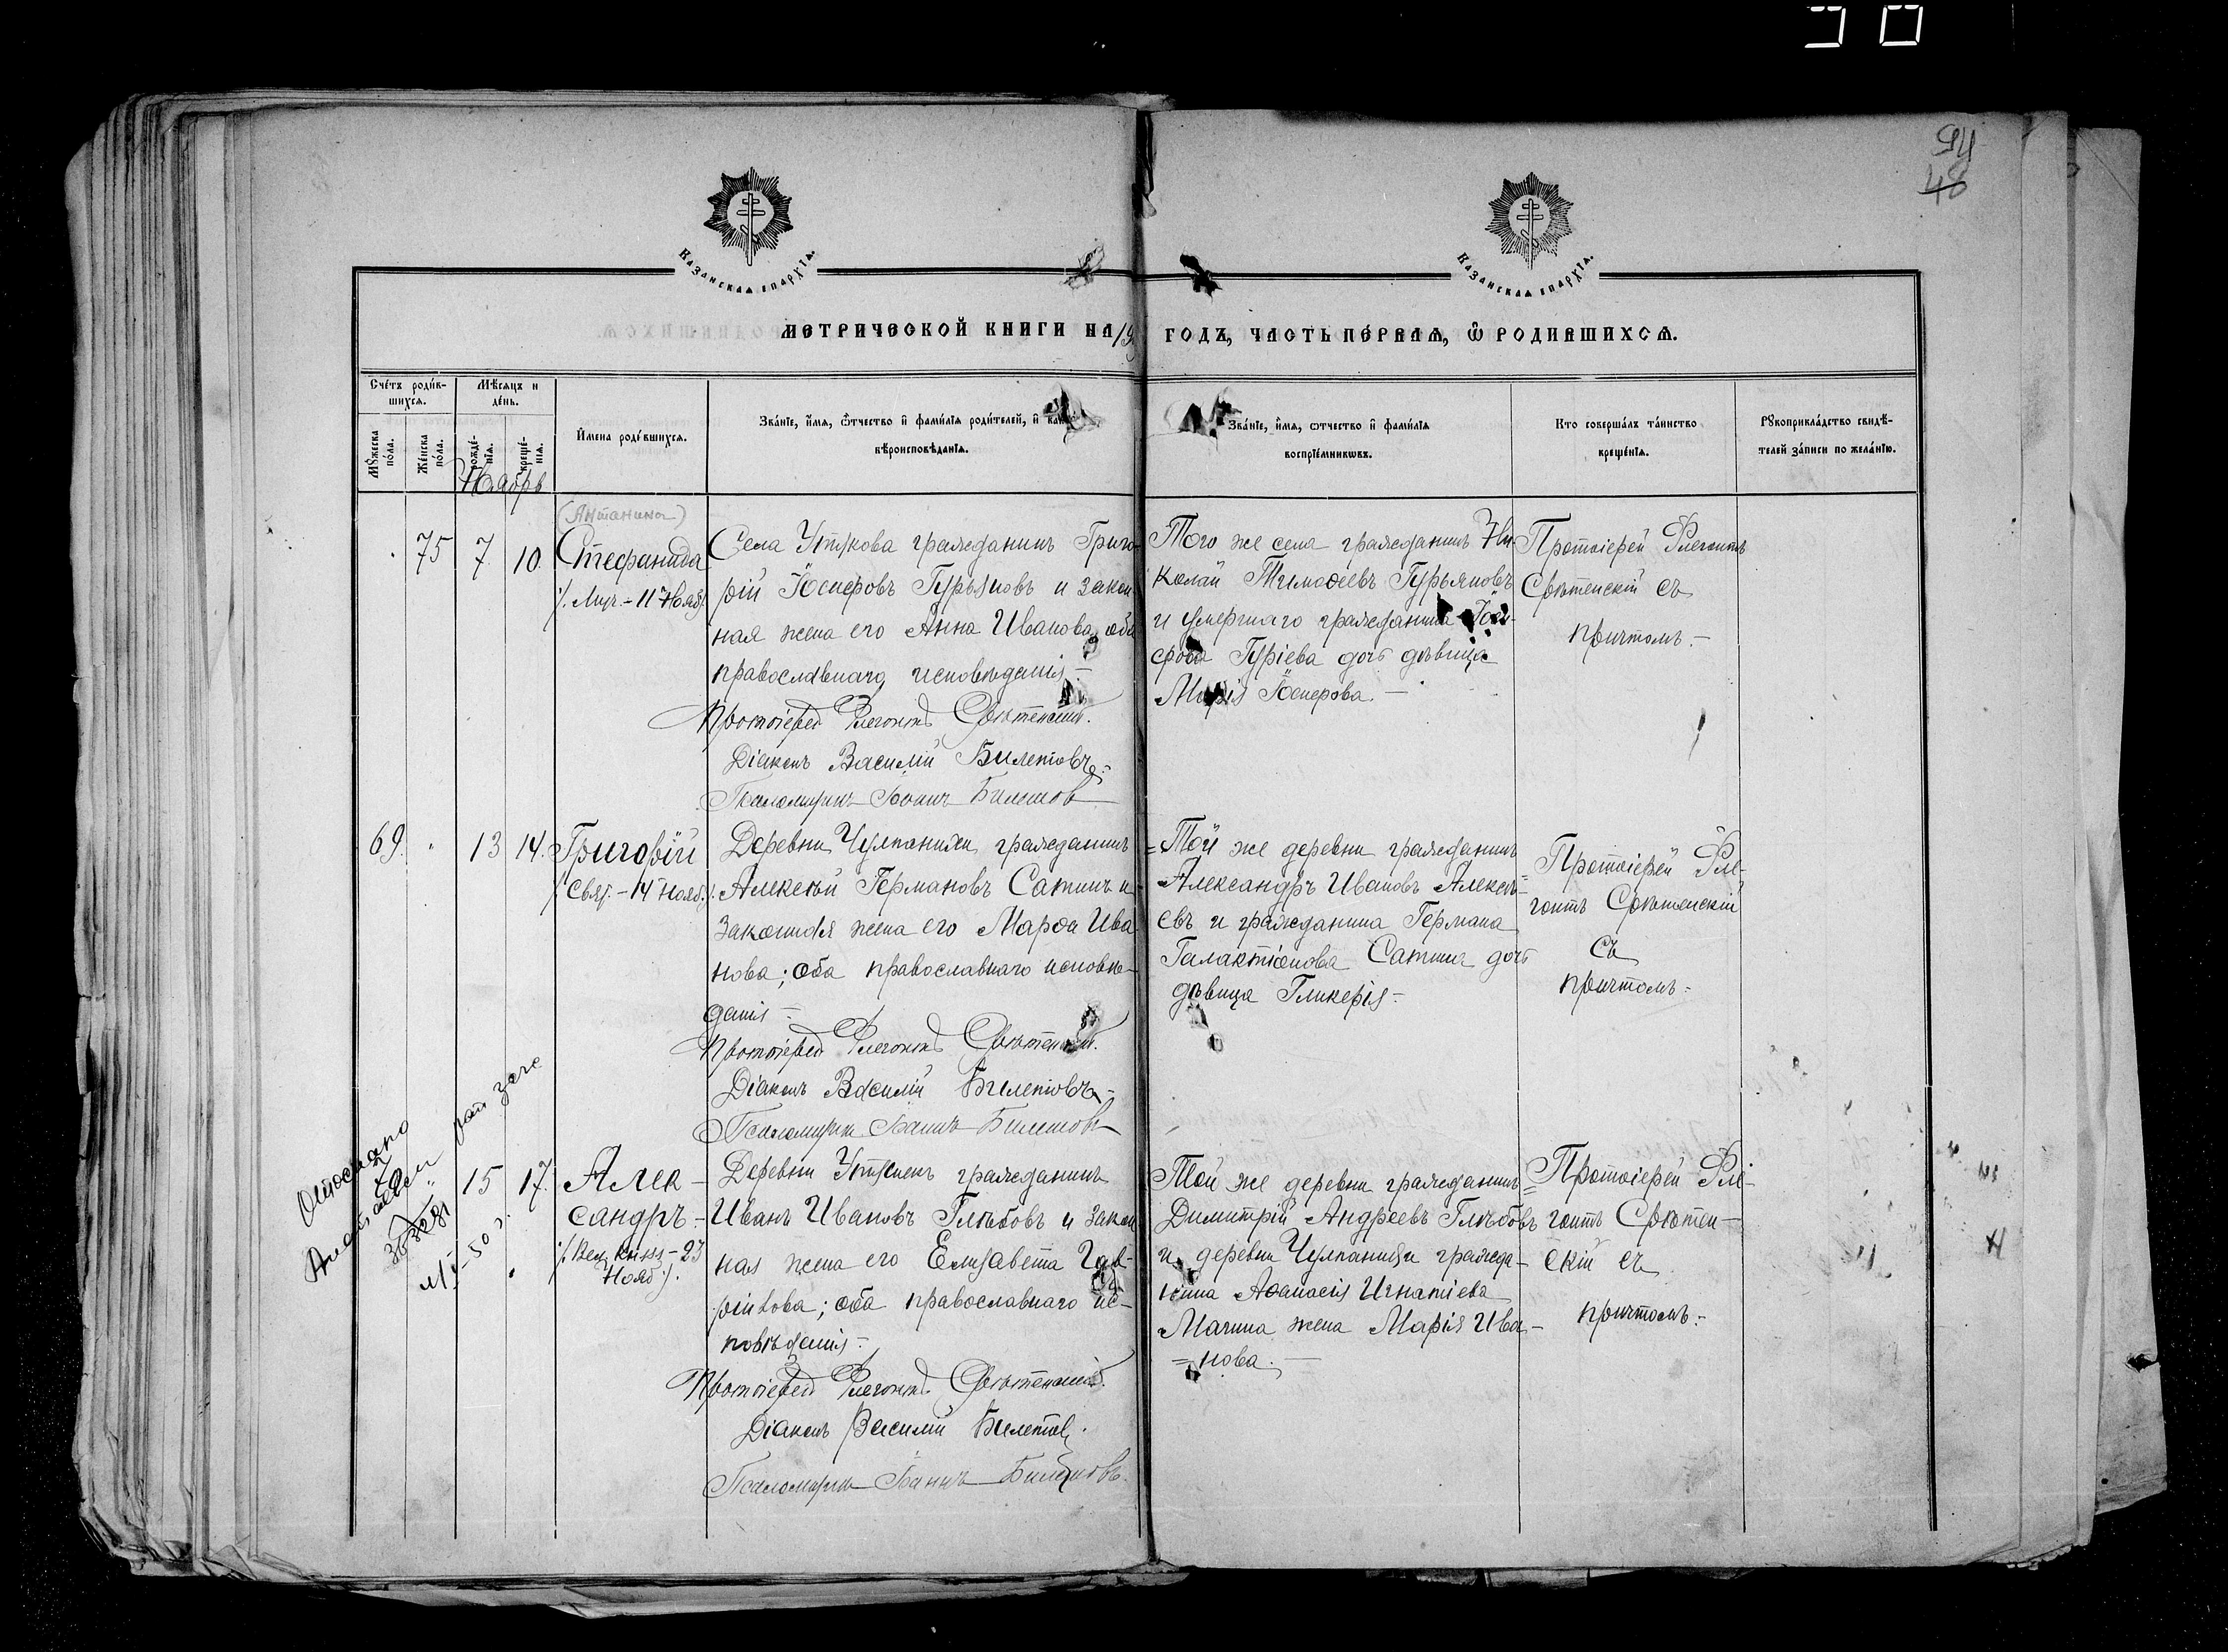 48
Казанская епархїѧ.
Казанская епархїѧ.
метрической книги на 19
годъ, часть первая, ѿ родившихсѧ.
Счетъ родив-
шихсѧ.
Мужеска
пола.
Женска
пола.
Мѣсяцъ и
день.
рожде-
нїѧ.
креще-
нїѧ.
Имена родившихсѧ.
Званїе, имѧ, ѿтчество и фамилїѧ родителей, и
вѣроисповѣданїѧ.
Званїе, имѧ, ѿтчество и фамилїѧ
воспрїемникѡвъ.
Кто совершалъ таинство
крещенїѧ.
Рукоприкладство свидѣ-
телей записи по желанїю.
Ноябрь
75
7
10.
(Антанина)
Стефанида
/. Муч.-11 Нояб/.
Села Утякова гражданинъ Григо-
рій Юсперовъ Гурьяновъ и закон
ная жена его Анна Иванова, оба
православнаго исповѣданія.-
Протоіерей Флегонтъ Срѣтенскій.
Діаконъ Василій Билетовъ.-
Псаломщикъ Іоаннъ Билетовъ
Того же села гражданинъ Ни-
колай Тимоѳеевъ Гурьяновъ
и умершаго гражданина
Гуріева дочь дѣвица
Марія Юсперова.-
Протоіерей Флегонтъ
Срѣтенскій съ
причтомъ.-
69.
13
14.
Григорій
/. Свят.-14 Нояб./.
Деревни Чулпанихи гражданинъ
Алексѣй Германовъ Сатинъ и
законная жена его Марѳа Ива
нова; оба православнаго исповѣ-
данія.-
Протоіерей Флегонтъ Срѣтенскій.
Діаконъ Василій Билетовъ.-
Псаломщикъ Іоаннъ Билетовъ
=Той же деревни гражданинъ
Александръ Ивановъ Алексѣ-
евъ и гражданина Германа
Галактіонова Сатина дочь
дѣвица Гликерія.-
Протоіерей Фле-
гонтъ Срѣтенскій
съ
причтомъ.-
70
15
17.
Алек-
сандръ.-
/. Вел. князь-23
Нояб/.
Деревни гражданинъ
Иванъ Ивановъ Глѣбовъ и закон
ная жена его Елизавета Гав-
ріилова; оба православнаго ис-
повѣданія.-
Протоіерей Флегонтъ Срѣтенскій.
Діаконъ Василій Билетовъ.
Псаломщикъ Іоаннъ Билетовъ.
Той же деревни гражданинъ
Димитрій Андреевъ Глѣбовъ
и деревни Чулпанихи гражда-
нина Аѳанасія Игнатіева
Мачина жена Марія Ива-
=нова.-
Протоіерей Фле-
гонтъ Срѣтен-
скій съ
причтомъ.-